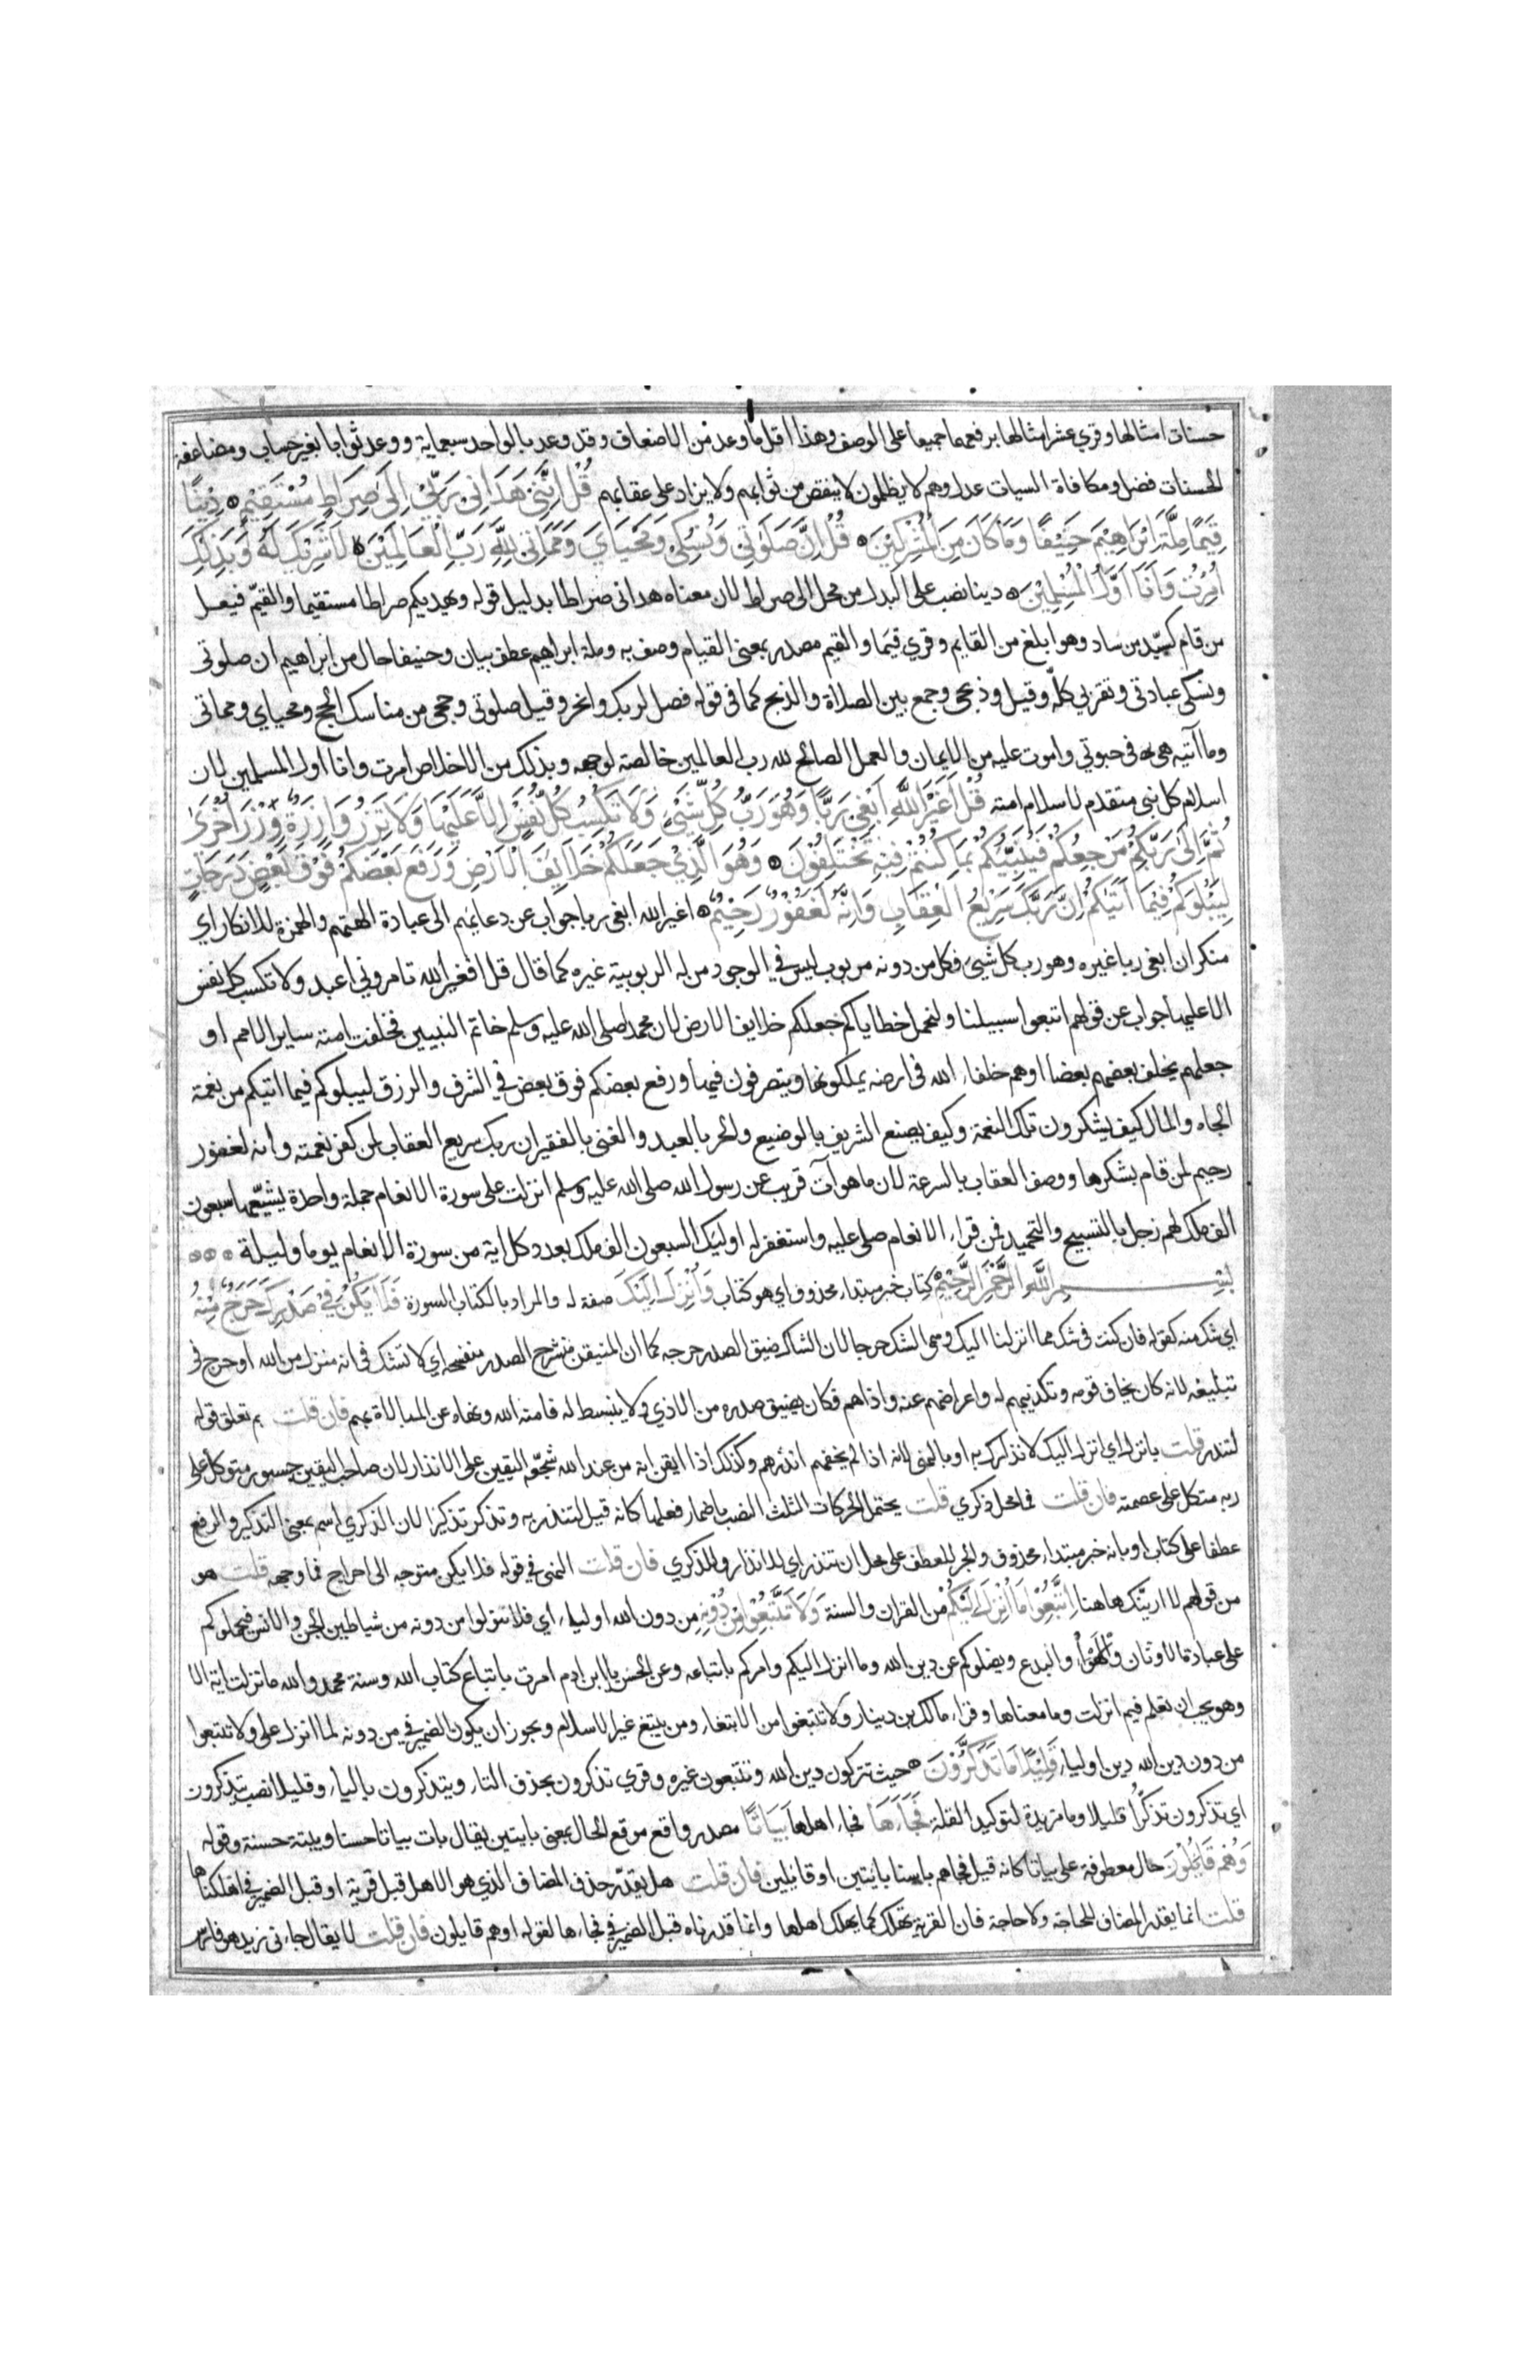 حسنات امثالها وقري عشر امثالها برفعهما جميعا على الوصف وهذا اقل ما وعد من الاضعاف وقد وعد بالواحد سبعماية ووعد ثوابا بغير حساب ومضاعفة
الحسنات فضل ومكافاة السيات عدل وهم لا يظلمون لا ينقص من ثوابهم ولا يزاد على عقابهم قُلْ اِنَّنِي هَدَانِي رَبِّي اِلَى صِرَاطٍ مُسْتَقِيْمٍ دِيْنًا
قِيَمًا مِلَّةَ اِبْرَاهِيْمَ حَنِيْفًا وَمَا كَانَ مِنَ الْمُشْرِكِيْنَ قُلْ اِنَّ صَلَوتِي وَنُسُكِي وَمَحْيَايَ وَمَمَاتِي لِلَّهِ رَبِّ الْعَالَمِيْنَ لَا شَرِيْكَ لَهُ وَبِذَلِكَ
اُمِرْتُ وَاَنَا اَوَّلُ الْمُسْلِمِيْنَ دينا نصب على البدل من محل الى صراط لان معناه هداني صراطا بدليل قوله ويهديكم صراطا مستقيما والقيم فيعل
من قام كسيّد من ساد وهو ابلغ من القايم وقري قيما والقيم مصدر بمعنى القيام وصف به وملة ابراهيم عطف بيان وحنيفا حال من ابراهيم ان صلوتي
ونسكي عبادتي وتقربي كله وقيل وذبحي وجمع بين الصلاة والذبح كما في قوله فصل لربك وانحر وقيل صلوتي وحجي من مناسك الحج ومحياي ومماتي
وما آتيه في حيوتي واموت عليه من الايمان والعمل الصالح لله رب العالمين خالصة لوجهه وبذلك من الاخلاص امرت وانا اول المسلمين لان
اسلام كل نبي متقدم لاسلام امته قُلْ اَغَيْرَ اللَّهِ اَبْغِي رَبًّا وَهُوَ رَبُّ كُلِّ شَيْءٍ وَلَا تَكْسِبُ كُلُّ نَفْسٍ اِلَّا عَلَيْهَا وَلَا تَزِرُ وَازِرَةٌ وِزْرَ اُخْرَى
ثُمَّ اِلَى رَبِّكُمْ مَرْجِعُكُمْ فَيُنَبِّئُكُمْ بِمَا كُنْتُمْ فِيْهِ تَخْتَلِفُوْنَ وَهُوَ الَّذِيْ جَعَلَكُمْ خَلَايِفَ الْاَرْضِ وَرَفَعَ بَعْضَكُمْ فَوْقَ بَعْضٍ دَرَجَاتٍ
لِيَبْلُوَكُمْ فِيْمَا اَتَيكُمْ اِنَّ رَبَّكَ سَرِيْعُ الْعِقَابِ وَاِنَّهُ لَغَفُوْرٌ رَحِيْمٌ اغير الله ابغي ربا جواب عن دعايهم الى عبادة الهتهم والهمزة للانكار اي
منكر ان ابغي ربا غيره وهو رب كل شيء فكل من دونه مربوب ليس في الوجود من له الربوبية غيره كما قال قل افغير الله تامروني اعبد ولا تكسب كل نفس
الا عليها جواب عن قولهم اتبعوا سبيلنا ولنحمل خطاياكم جعلكم خلايف الارض لان محمدا صلى الله عليه وسلم خاتم النبيين فخلفت امته ساير الامم او
جعلهم يخلف بعضهم بعضا او هم خلفاء الله في ارضه يملكونها ويتصرفون فيها ورفع بعضكم فوق بعض في الشرف والرزق ليبلوكم فيما اتيكم من نعمة
الجاه والمال كيف يشكرون تلك النعمة وكيف يصنع الشريف بالوضيع والحر بالعبد والغني بالفقير ان ربك سريع العقاب لمن كفر نعمته وانه لغفور
رحيم لمن قام بشكرها ووصف العقاب بالسرعة لان ما هو آت قريب عن رسول الله صلى الله عليه وسلم انزلت على سورة الانعام جملة واحدة يشيّعها سبعون
الف ملك لهم زجل بالتسبيح والتحميد فمن قراء الانعام صلى عليه واستغفر له اوليك السبعون الف ملك بعدد كل اية من سورة الانعام يوما وليلة
بسم الله الرحمن الرحيم كتاب خبر مبتداء محذوف اي هو كتاب وَاُنْزِلَ اِلَيْكَ صفة له والمراد بالكتاب السورة فَلَا يَكُنْ فِيْ صَدْرِكَ حَرَجٌ مِنْهُ
اي شك منه كقوله فان كنت في شك مما انزلنا اليك وسمي الشك حرجا لان الشاك ضيق الصدر حرجه كما ان المتيقن منشرح الصدر منفسحه اي لا تشك في انه منزل من الله او حرج في
تبليغه لانه كان يخاف قومه وتكذيبهم له واعراضهم عنه واذاهم فكان يضيق صدره من الاذي ولا ينبسط له فامنه الله ونهاه عن المبالاة بهم فان قلت بم تعلق قوله
لتنذر قلت بانزل اي انزل اليك لانذارك به او بالنهي لانه اذا لم يخفهم انذرهم وكذلك اذا ايقن انه من عند الله شجّعه اليقين على الانذار لان صاحب اليقين جسور متوكل على
ربه متكل على عصمته فان قلت فما محل ذكري قلت يحتمل الحركات الثلث النصب باضمار فعلها كانه قيل لتنذر به وتذكر تذكيرا لان الذكري اسم بمعنى التذكير والرفع
عطفا على كتاب او بانه خبر مبتداء محذوف والجر للعطف على محل ان تنذر اي للانذار وللذكري فان قلت النهي في قوله فلا يكن متوجه الى الحرج فما وجهه قلت هو
من قولهم لا ارينّك هاهنا اِتَّبِعُوْا مَا اُنْزِلَ اِلَيْكُمْ من القران والسنة وَلَا تَتَّبِعُوْا مِنْ دُوْنِهِ من دون الله اولياء اي فلا تتولوا من دونه من شياطين الجن والانس فيحملوكم
على عبادة الاوثان والاهواء والبدع ويضلوكم عن دين الله وما انزل اليكم وامركم باتباعه وعن الحسن يا ابن ادم امرت باتباع كتاب الله وسنة محمد والله ما نزلت اية الا
وهو يحب ان تعلم فيم انزلت وما معناها وقراء مالك بن دينار ولا تبتغوا من الابتغاء ومن يبتغ غير الاسلام ويجوز ان يكون الضمير في من دونه لما انزل على ولا تتبعوا
من دون دين الله دين اولياء قَلِيْلًا مَا تَذَكَّرُوْنَ حيث تتركون دين الله وتتبعون غيره وقري تذكرون بحذف التاء ويتذكرون بالياء وقليلا نصب بتذكرون
اي تذكرون تذكرًا قليلا وما مزيدة لتوكيد القلة فَجَاءَهَا فجاء اهلها بَيَاتًا مصدر واقع موقع الحال بمعنى بايتين يقال بات بياتا حسنا وبيتة حسنة وقوله
وَهُمْ قَايِلُوْنَ حال معطوفة على بياتا كانه قيل فجاهم باسنا بايتين او قايلين فان قلت هل يقدّر حذف المضاف الذي هو الاهل قبل قرية او قبل الضمير في اهلكناها
قلت انما يقدر المضاف للحاجة ولا حاجة فان القرية تهلك كما يهلك اهلها وانما قدرناه قبل الضمير في فجاءها لقوله او هم قايلون فان قلت لا يقال جاءني زيد هو فارس